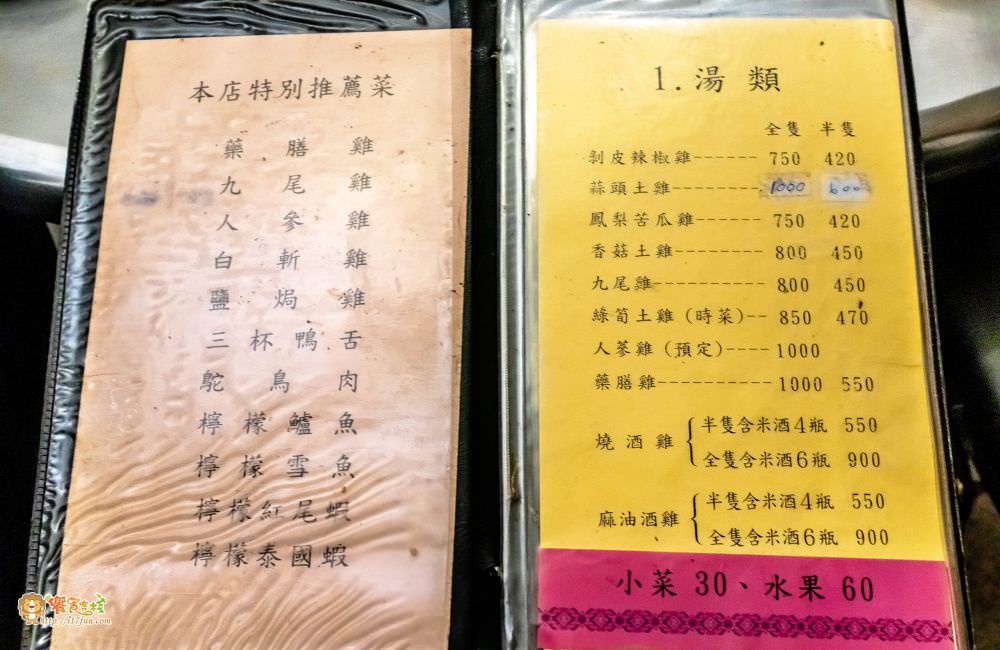 本店特別推薦菜
藥膳雞
九尾雞
人參雞
白斬雞
鹽焗雞
三杯鴨舌
鴕鳥肉
檸檬鱸魚
檸檬雪魚
檸檬紅尾蝦
檸檬泰國蝦
饗宴食樂
http://17fun.com/
1.湯類
全隻 半隻
剝皮辣椒雞------ 750 420
蒜頭土雞-------- 1000 600
鳳梨苦瓜雞------ 750 420
香菇土雞-------- 800 450
九尾雞---------- 800 450
綠筍土雞(時菜)-- 850 470
人蔘雞(預定)---- 1000
藥膳雞---------- 1000 550
燒酒雞
半隻含米酒4瓶 550
全隻含米酒6瓶 900
麻油酒雞
半隻含米酒4瓶 550
全隻含米酒6瓶 900
小菜 30、水果 60